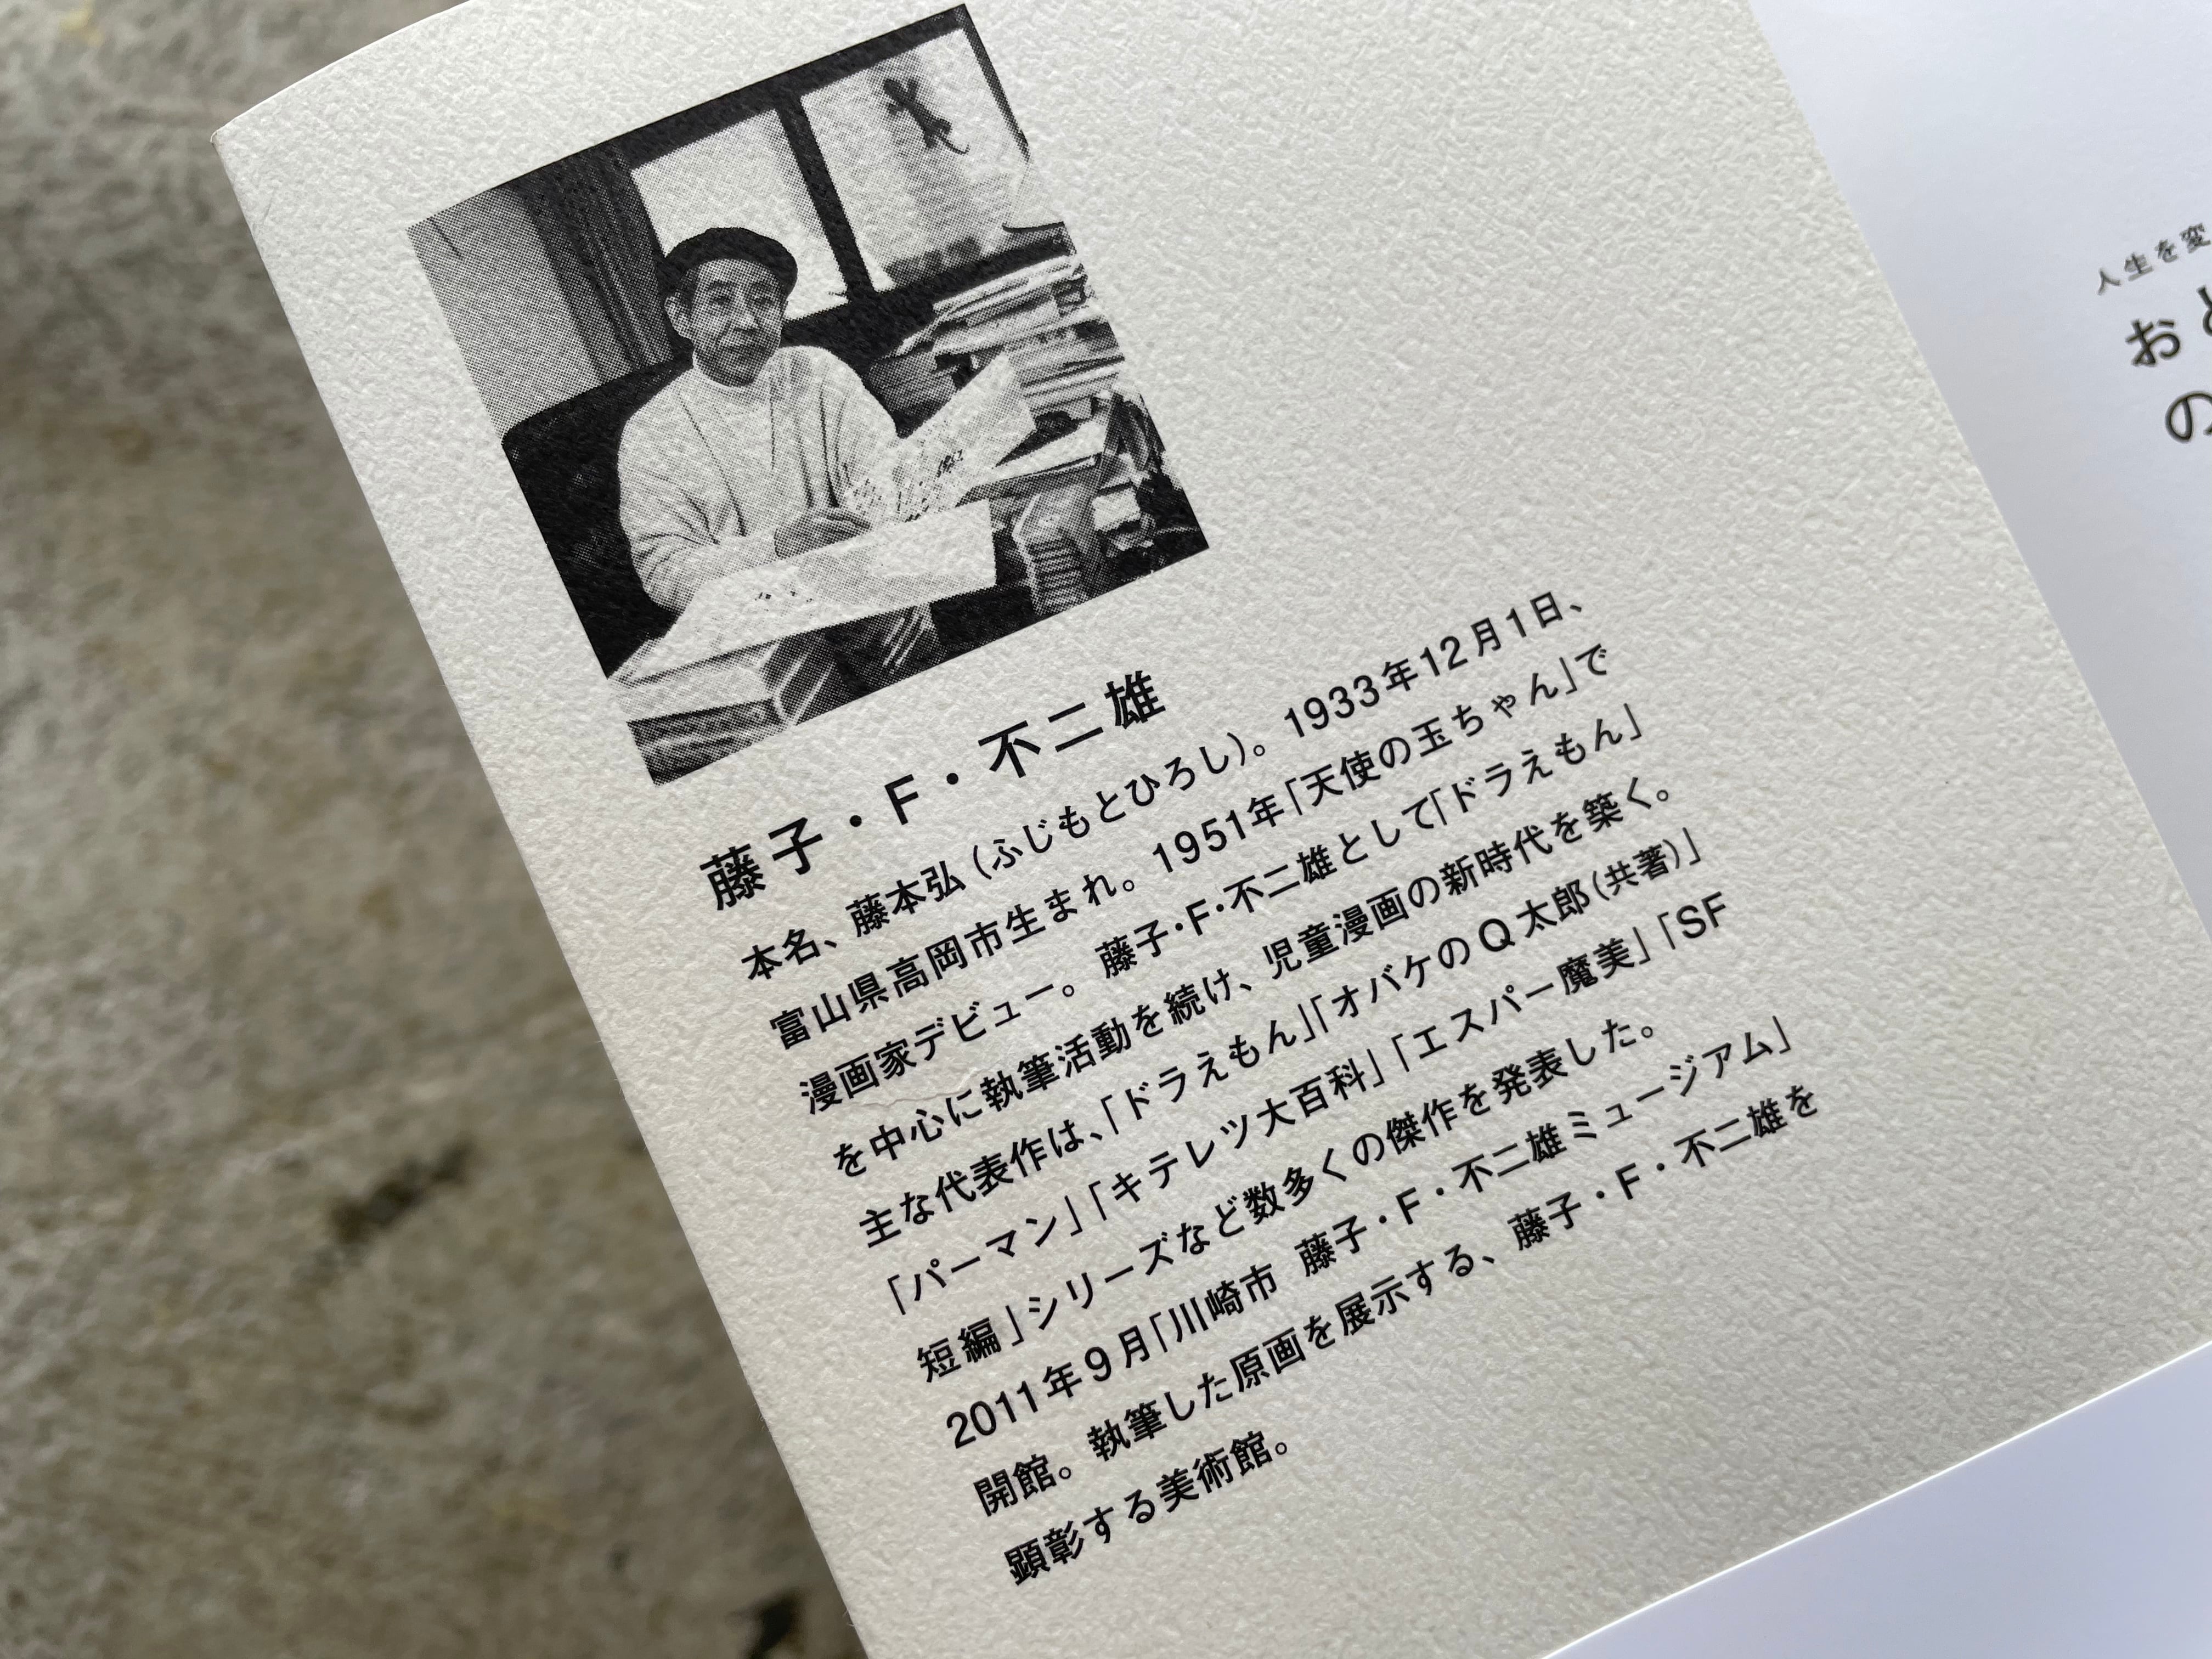 藤子・F・不二雄
本名、藤本弘（ふじもとひろし）。1933年12月1日、
富山県高岡市生まれ。1951年「天使の玉ちゃん」で
漫画家デビュー。藤子・F・不二雄として「ドラえもん」
を中心に執筆活動を続け、児童漫画の新時代を築く。
主な代表作は、「ドラえもん」「オバケのQ太郎（共著）」
「パーマン」「キテレツ大百科」「エスパー魔美」「SF
短編」シリーズなど数多くの傑作を発表した。
2011年9月「川崎市 藤子・F・不二雄ミュージアム」
開館。執筆した原画を展示する、藤子・F・不二雄を
顕彰する美術館。
人生を変
おと
の